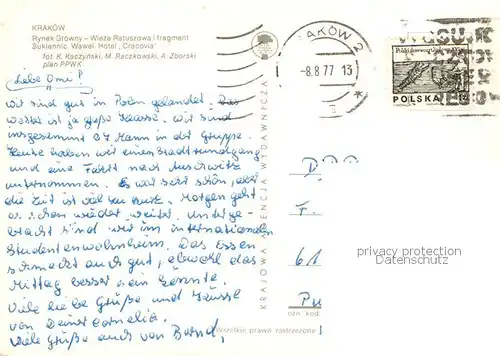 KRAKÓW
Rynek Główny – Wieża Ratuszowa i fragment
Sukiennic. Wawel. Hotel „Cracovia"
fot: K. Kaczyński, M. Raczkowski, A. Zborski
plan PPWK
Liebe Omi!
Wir sind gut in Polen gelandet. Das
Wetter ist ja große Klasse. Wir sind
insgesamt 27 Mann in der Gruppe.
Heute haben wir einen Stadtrundgang
und eine Fahrt nach Auschwitz
unternommen. Es war sehr schön, aber
die Zeit ist viel zu kurz. Morgen geht
es schon wieder weiter. Unterge-
bracht sind wir im internationalen
Studentenwohnheim. Das Essen
schmeckt auch gut, obwohl das
Mittag besser sein könnte.
Viele liebe Grüße und Küsse
von Deiner Cornelia.
Viele Grüße auch von Bernd.
KRAJOWA AGENCJA WYDAWNICZA
KRAKÓW 2
-8.8.77 13
POLSKA
D
F.
61
Pu
ozn. kod
Wszelkie prawa zastrzeżone
privacy protection
Datenschutz